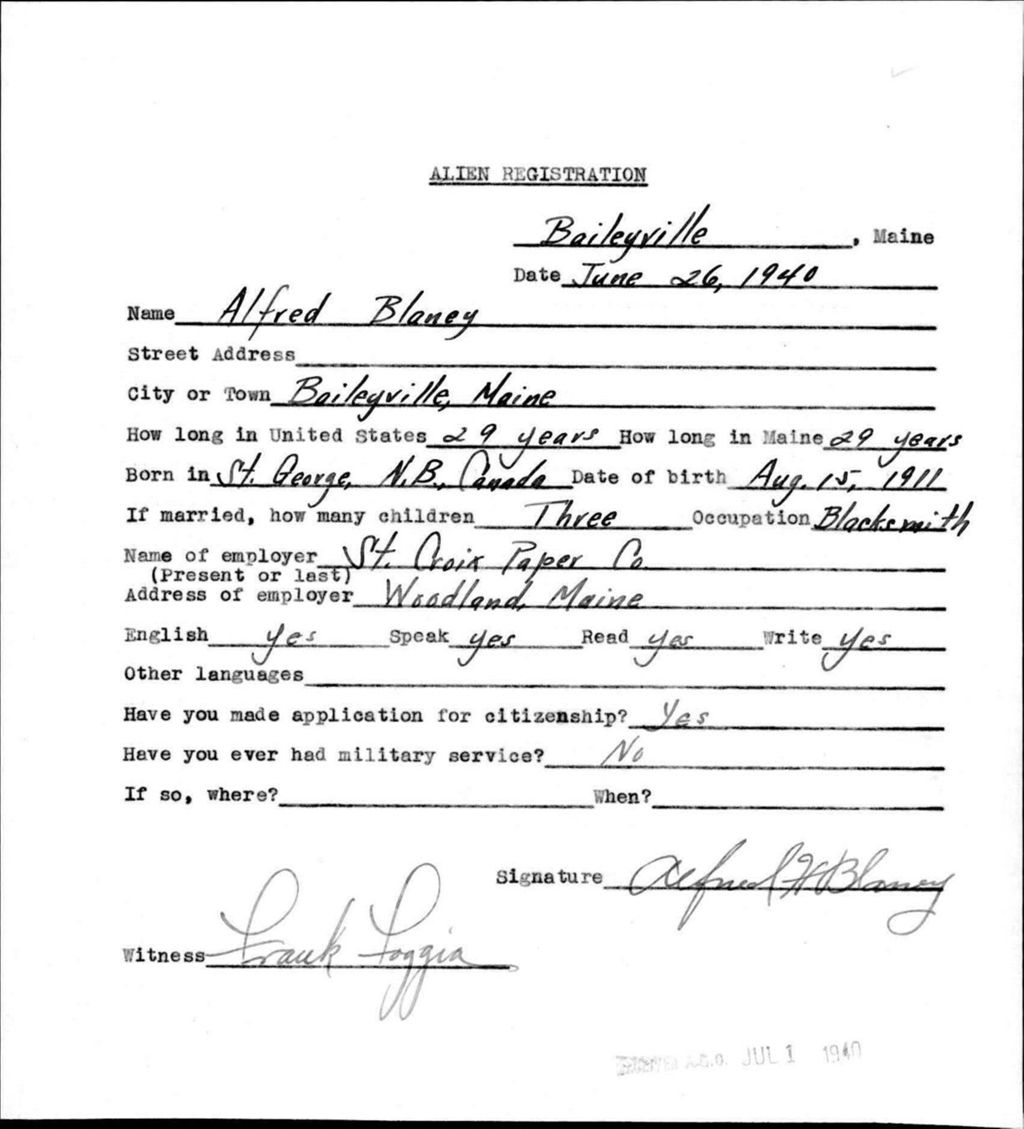 ALIEN REGISTRATION
Baileyville, Maine
Date June 26, 1940
Name Alfred Blaney
Street Address
City or Town Baileyville, Maine
How long in United States 29 years How long in Maine 29 years
Born in St. George, N.B., Canada Date of birth Aug. 15, 1911
If married, how many children Three Occupation Blacksmith
Name of employer St. Croix Paper Co.
(Present or last)
Address of employer Woodland, Maine
English yes Speak yes Read yes Write yes
Other languages
Have you made application for citizenship? Yes
Have you ever had military service? No
If so, where? When?
Signature Alfred H Blaney
Witness Frank Foggia
A.G.O. JUL 1 1940